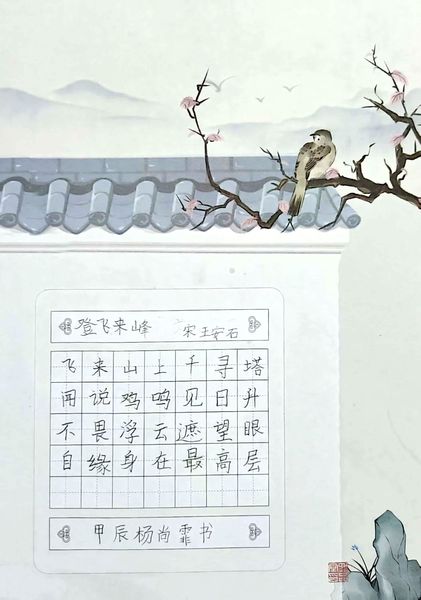 登飞来峰 宋王安石
飞来山上千寻塔
闻说鸡鸣见日升
不畏浮云遮望眼
自缘身在最高层
甲辰杨尚霏书